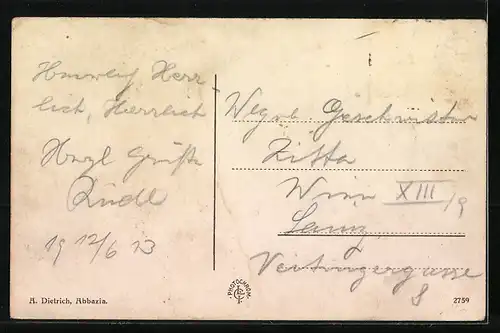 Herr-
lich, Herrlich
Herzl Grüße
Rudl
19 12/6 13
Geschwister
Zitta
Wien XIII/9
Lainz
Veitingergasse
8
A. Dietrich, Abbazia.
PHOTOCHROM.
2759